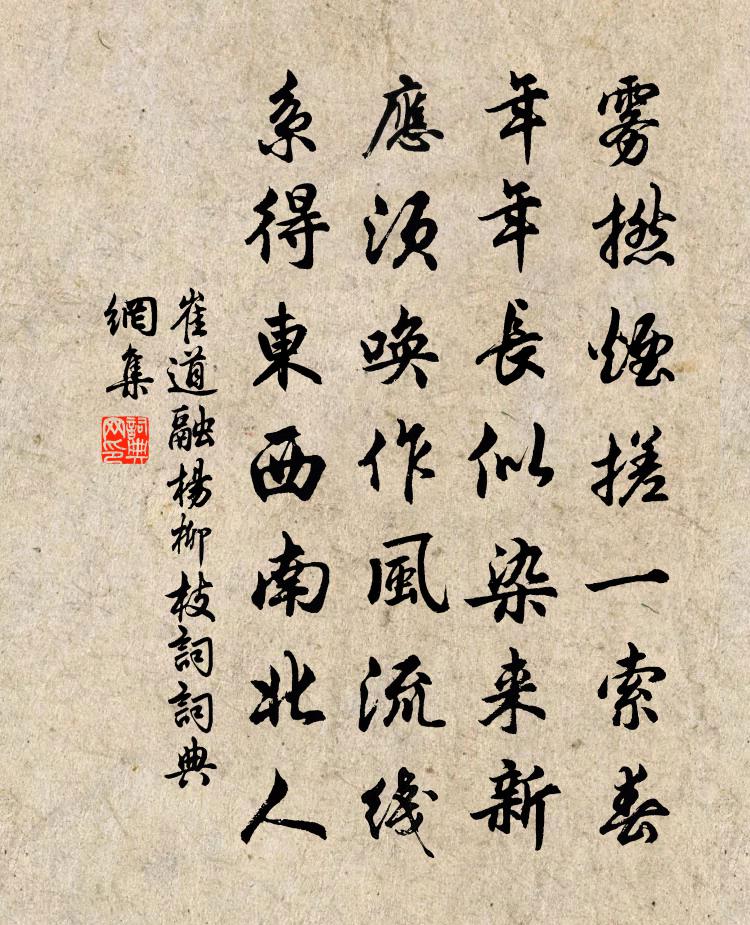 雾撚煙搓一索春
年年長似染来新
應須唤作風流綫
系得東西南北人
崔道融楊柳枝詞詞典
網集
詞典
网印